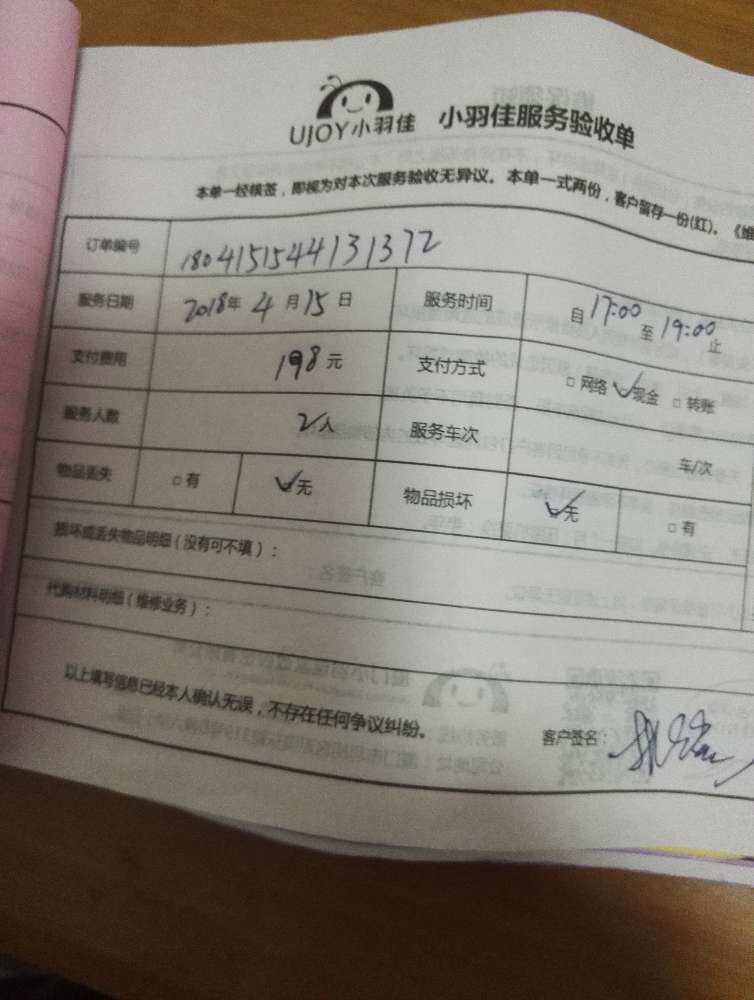 UJOY小羽佳 小羽佳服务验收单
本单一经核签，即视为对本次服务验收无异议。本单一式两份，客户留存一份(红)。《维
订单编号 1804151544131372
服务日期 2018年 4月15日 服务时间 自17:00至19:00止
支付费用 198元 支付方式 □网络 ✓现金 □转账
服务人数 2人 服务车次 车/次
物品丢失 □有 ✓无 物品损坏 ✓无 □有
损坏或丢失物品明细（没有可不填）：
代购材料明细（维修业务）：
以上填写信息已经本人确认无误，不存在任何争议纠纷。 客户签名：